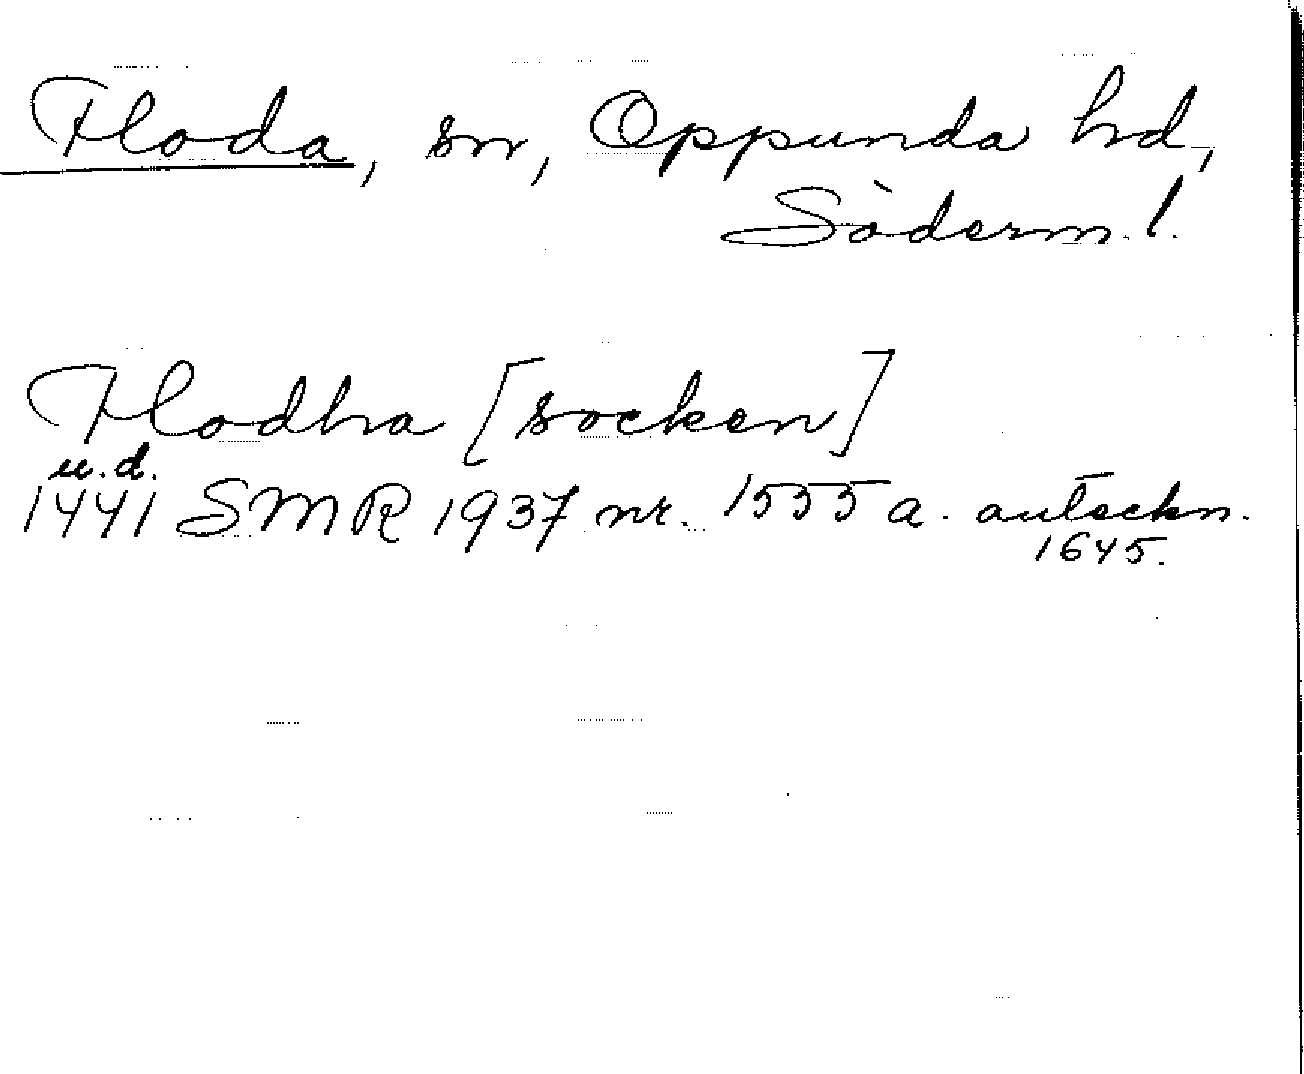 Floda, sn, Oppunda hd,
Söderm. l.
Flodha [socken]
u.d.
1441 SMR 1937 nr. 1555 a. anteckn.
1645.